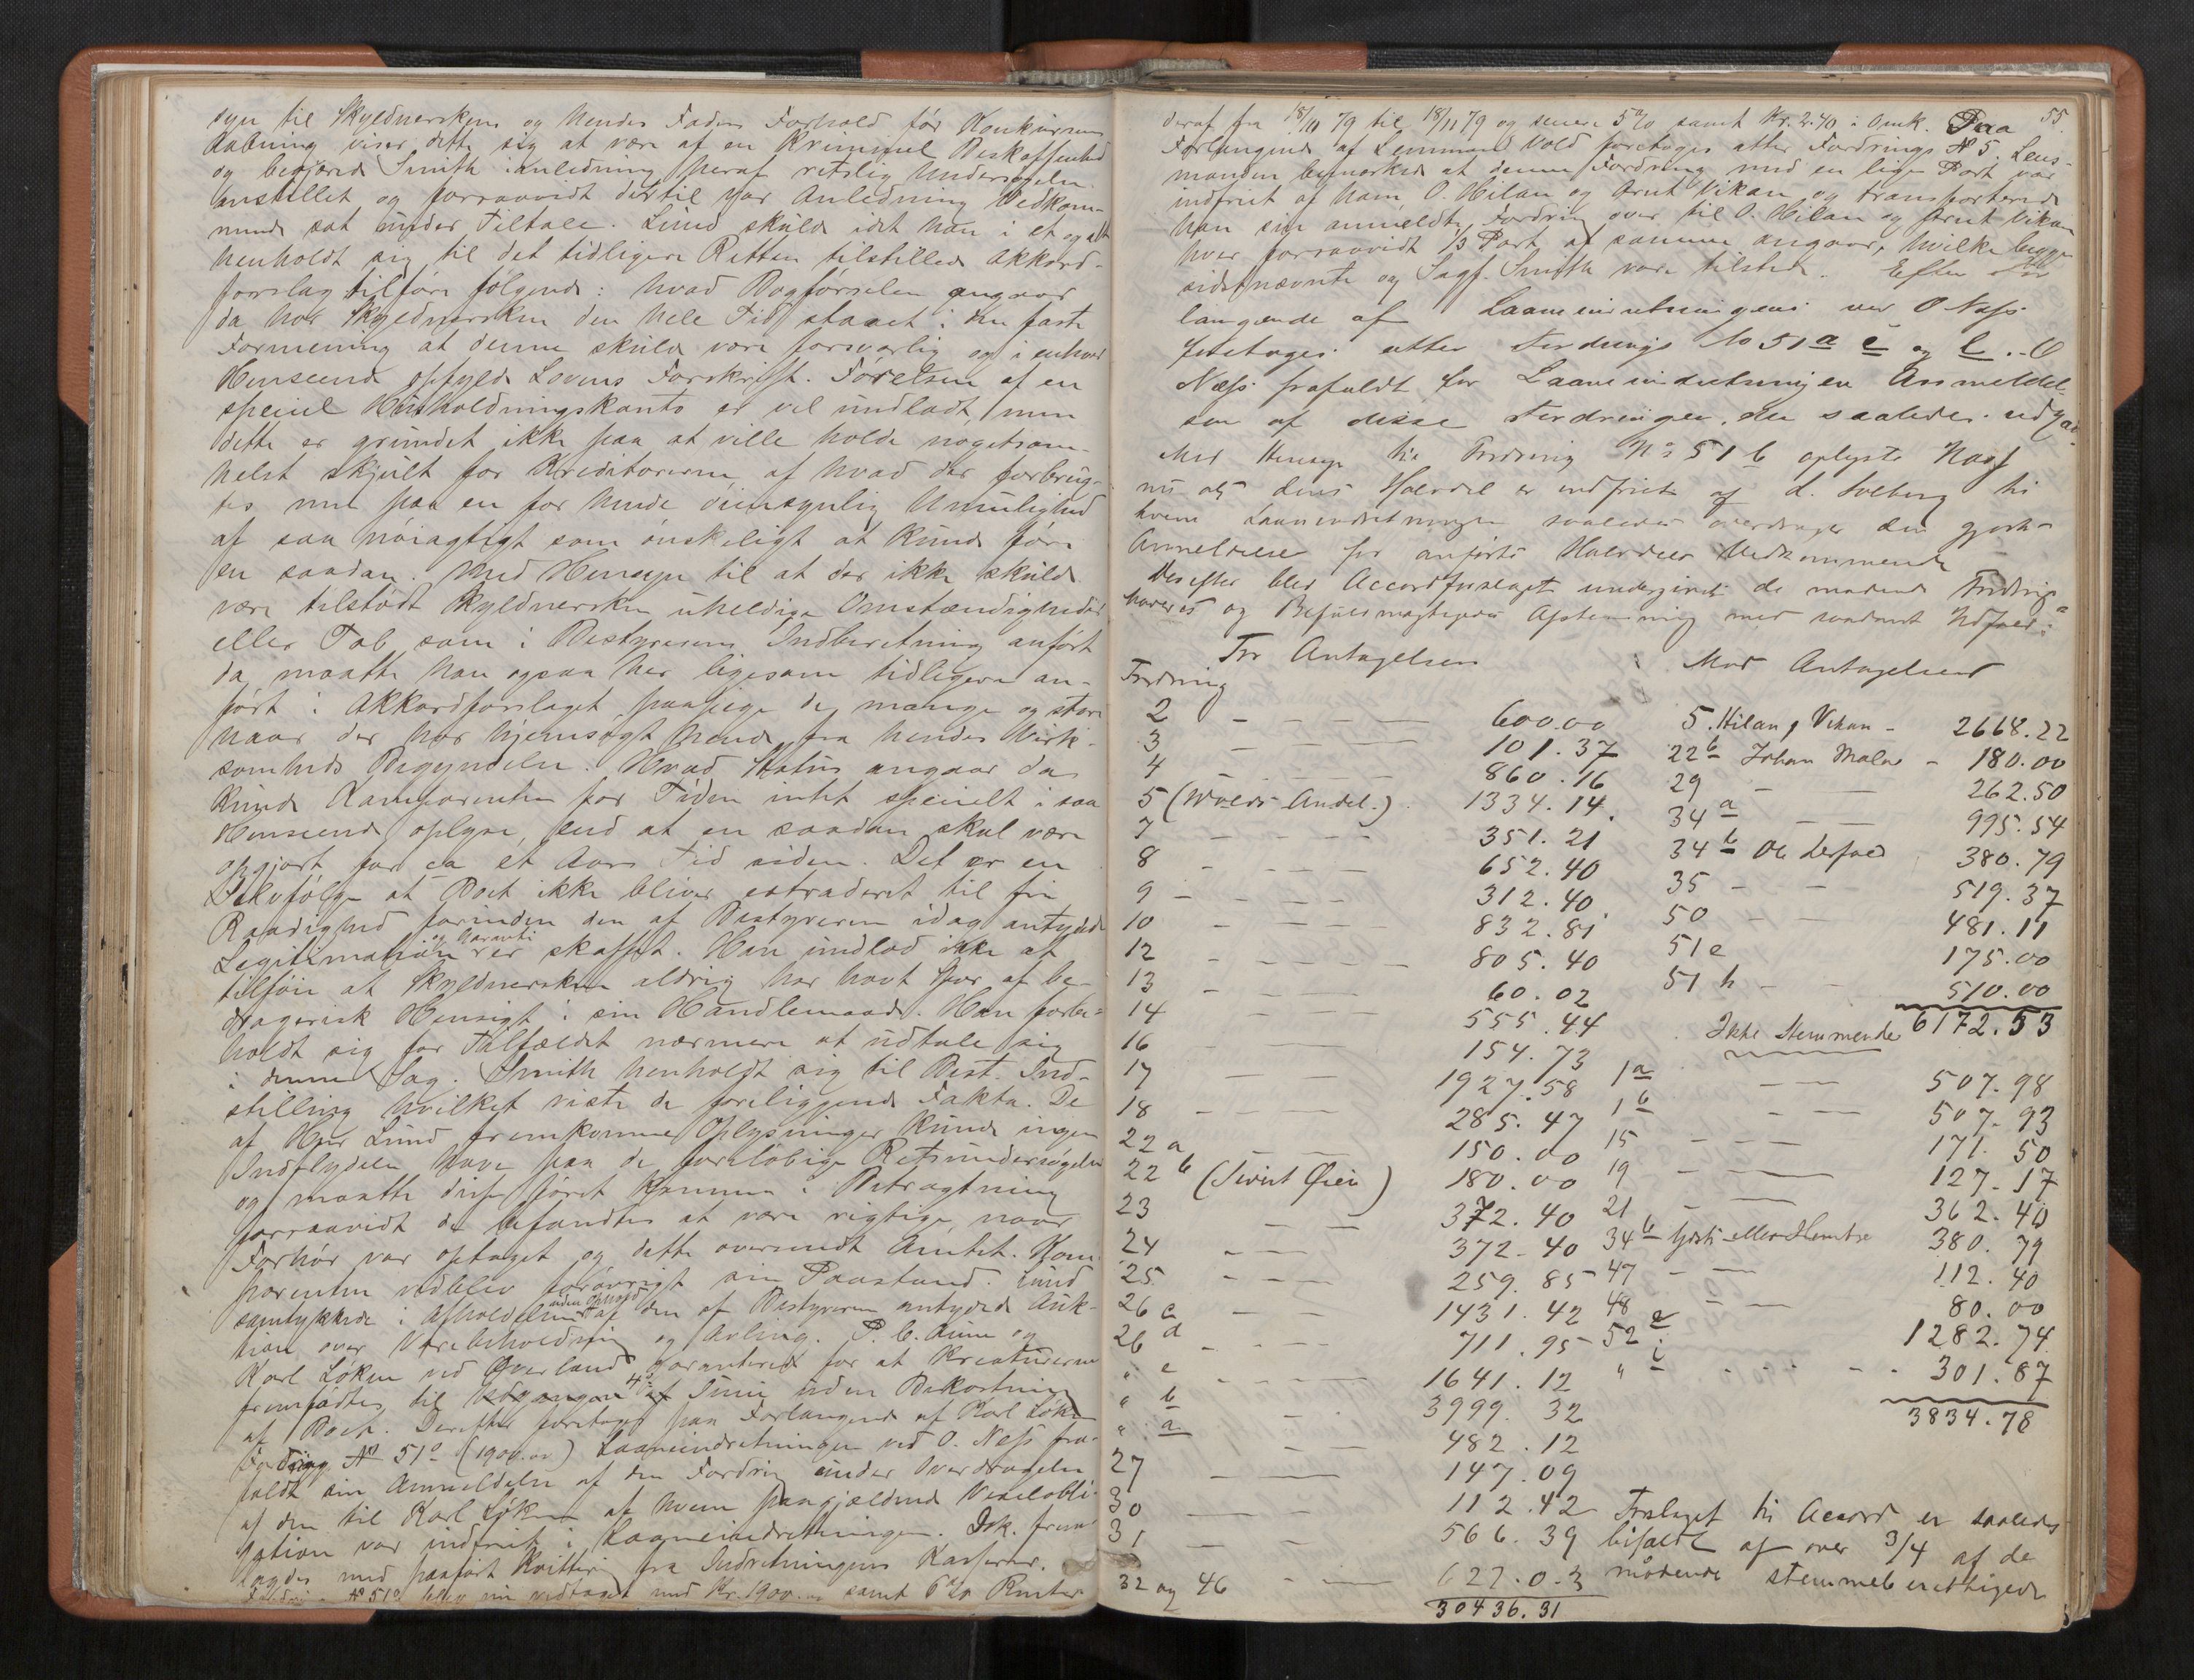 syn til Skyldnerskens og hendes Faders Forhold før Konkursens
Aabning viser dette sig at være af en Kriminel Beskaffenhed
og begjærede Smith i anledning heraf retslig Undersøgelse
anstillet og forsaavidt dertil var Anledning Vedkom-
mende sat under Tiltale. Lund skulde idet han i et og alt
henholdt sig til det tidligere Retten tilstillede Akkord-
forslag tilføre følgende: hvad Bogførselen angaar
da har Skyldnersken den hele Tid staaet i den faste
Formening at denne skulde være forsvarlig og i enhver
Henseende opfylde Lovens Forskrift. Førelsen af en
speciel Husholdningskonto er vel undladt, men
dette er grundet ikke paa at ville holde nogetsom-
helst skjult for Kreditorerne af hvad der forbrug-
tes men paa en for hende øiensynlig Umulighed
af saa nøiagtigt som ønskeligt at kunde føre
en saadan. Med Hensyn til at der ikke skulde
være tilstødt Skyldnersken uheldige Omstændigheder
eller Tab som i Bestyrerens Indberetning anført
da maatte han ogsaa her ligesom tidligere an-
ført i Akkordforslaget paapege de mange og store
naar der har hjemsøgt hende fra hendes Virk-
somheds Begyndelse. Hvad Status angaar da
kunde Komparenten for Tiden intet specielt i saa
Henseende oplyse, end at en saadan skal være
opgjort for ca et Aars Tid siden. Det er en
Selvfølge at Boet ikke bliver extraderet til fri
Raadighed forinden den af Bestyreren idag antydede
Legitimation og Garanti er skaffet. Han undlod ikke at
tilføie at Skyldnersken aldrig har havt Spor af be-
dragerisk Hensigt i sin Handlemaade. Han forbe-
holdt sig for Tilfældet nærmere at udtale sig
i denne Sag. Smith henholdt sig til Best. Ind-
stilling hvilket viste de foreliggende Fakta. De
af Herr Lund fremkomne Oplysninger kunde ingen
Indflydelse have paa de foreløbige Retsundersøgelse
og maatte disse først komme i Betragtning
forsaavidt de befandtes at være rigtige, naar
Forhør var optaget og dette oversendt Amtet. Kom-
parenten vedblev forøvrigt sin Paastand. Lund
samtykkede i Afholdelsen uden Ophold af den af Bestyreren antydede Auk-
tion over Varebeholdning og Avling. P. C. Aune og
Karl Løken ved Øverland garanterede for at Kreaturerne
fremfødtes til 4de Juni uden Bekostning
af Boet. Derefter foretoges paa Forlangende af Karl Løken
Fordring No 51 (1900.00) Laaneindretningen ved O. Næss fra-
faldt sin Anmeldelse af den Fordring under Overdragelse
af den til Karl Løken af hvem paagjældende Vexelobli-
gation var indfriet i Laaneindretningen. Dok. frem-
lagdes med paaført Kvittering fra Indretningens Kasserer.
Fordring No 51 blev nu vedtaget med Kr. 1900.00 samt 6% Renter
55.
deraf fra 18/10 79 til 18/11 79 og senere 5% samt Kr. 2.40 i Omk. Paa
Forlangende af Lensmand Vold foretoges atter Fordring No 5. Lens-
manden bemærkede at denne Fordring med en lige Part var
indfriet af ham, O. Hilan og Arnt Vikan og transporterede
han sin anmeldte Fordring over til O. Hilan og Arnt Vikan
hver forsaavidt 1/3 Part af samme angaar, hvilke begge
sidstnævnte og Sagf. Smith vare tilstede. Efter For-
langende af Laaneindretningen ved O Næss
foretoges atter Fordrings No 51 a e og l. O
Næss frafaldt for Laaneindretningen Anmeldel-
sen af disse Fordringer, der saaledes udgaar.
Med Hensyn til Fordring No 51 b oplyste Næss
nu at dens Halvdel er indfriet af L. Solberg til
hvem Laaneindretningen saaledes overdrager den gjorte
Anmeldelse for anførte Halvdels Vedkommende
Derefter blev Accordforslaget undergivet de mødende Fordrings-
haveres og Befuldmægtigedes Afstemning med saadant Udfald:
For Antagelsen : Mod Antagelsen
Fordring
2 - - - — 600.00 5. Hilan & Vikan - 2668.22
3 — — — — 101.37 22b Johan Malne - 180.00
4 - - - — 860.16 29 - — 262.50
5 (Wolds Andel.) 1334.14. 34a — — 995.54
7 - - - - 351.21 34b Ole Lerfald 380.79
8 - - - — 652.40 35 - - 519.37
9 - - - - 312.40 50 - — 481.11
10 - - - — 832.81 51e 175.00
12 - - - - 805.40 51 h - - 510.00
13 - — - — 60.02 6172.53
14 - - — 555.44 Ikke Stemmende
16 — — 154.73
17 — — 1927.58 1a — — 507.98
18 - — — 285.47 1b — — 507.93
22 a — — 150.00 15 - — 171.50
22 b (Sivert Øien) 180.00 19 - — 127.17
23 — — 372.40 21 - — 362.40
24 - - - 372.40 34b 380.79
25 - - — 259.85 47 - — 112.40
26 c — — 1431.42 48 - — 80.00
26 d - - - 711.95 52 e 1282.74
" e - - — 1641.12 " i - - - 301.87
" b - — 3999.32 3834.78
" a — — 482.12
27 — — 147.09
30 — — 112.42
31 — - 566.39
32 og 46 - — 622.03
30436.31
Forslaget til Accord er saaledes
bifaldt af over 3/4 af de
mødende stemmeberettigede